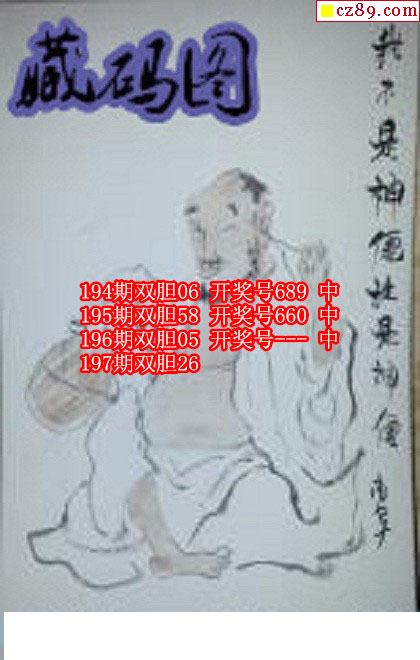 cz89.com
藏码图
我不是神便社是神便
194期双胆06 开奖号689 中
195期双胆58 开奖号660 中
196期双胆05 开奖号--- 中
197期双胆26